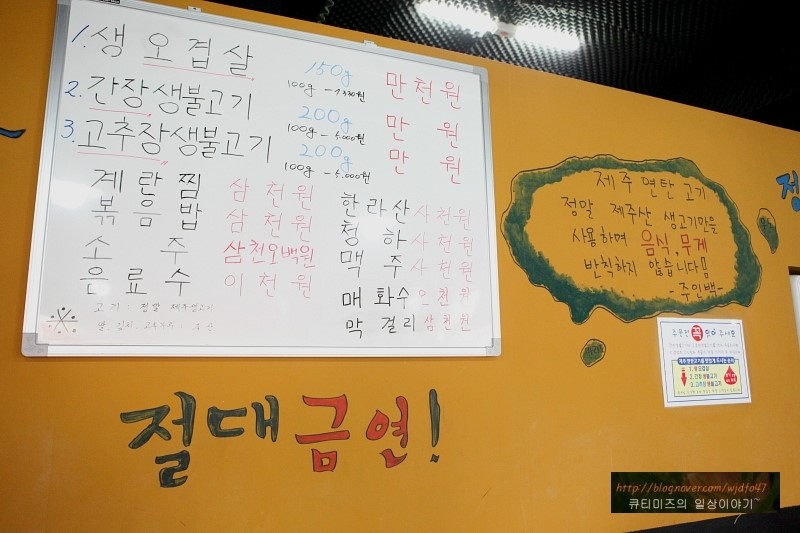 1. 생 오겹살 150g 만천원
100g - 7,330원
2. 간장생불고기 200g 만 원
100g - 5,000원
3. 고추장생불고기 200g 만 원
100g - 5,000원
계란찜 삼천원
볶음밥 삼천원
소 주 삼천오백원
음료수 이천원
한라산 사천원
청 하 사천원
맥 주 사천원
매화수 오천원
막걸리 삼천원
고기 : 정말 제주생고기
쌀, 김치, 고춧가루 :
절대 금연!
제주 연탄 고기
정말 제주산 생고기만을
사용하며 음식, 무게
반칙하지 않습니다!!
- 주인백 -
정
주문전 꼭 읽어 주세요
제주 연탄고기를 현명하게 드시는 순서
1. 생 오겹살
2. 간장 생불고기
3. 고추장 생불고기
http://blog.naver.com/wjdfo47
큐티미즈의 일상이야기~